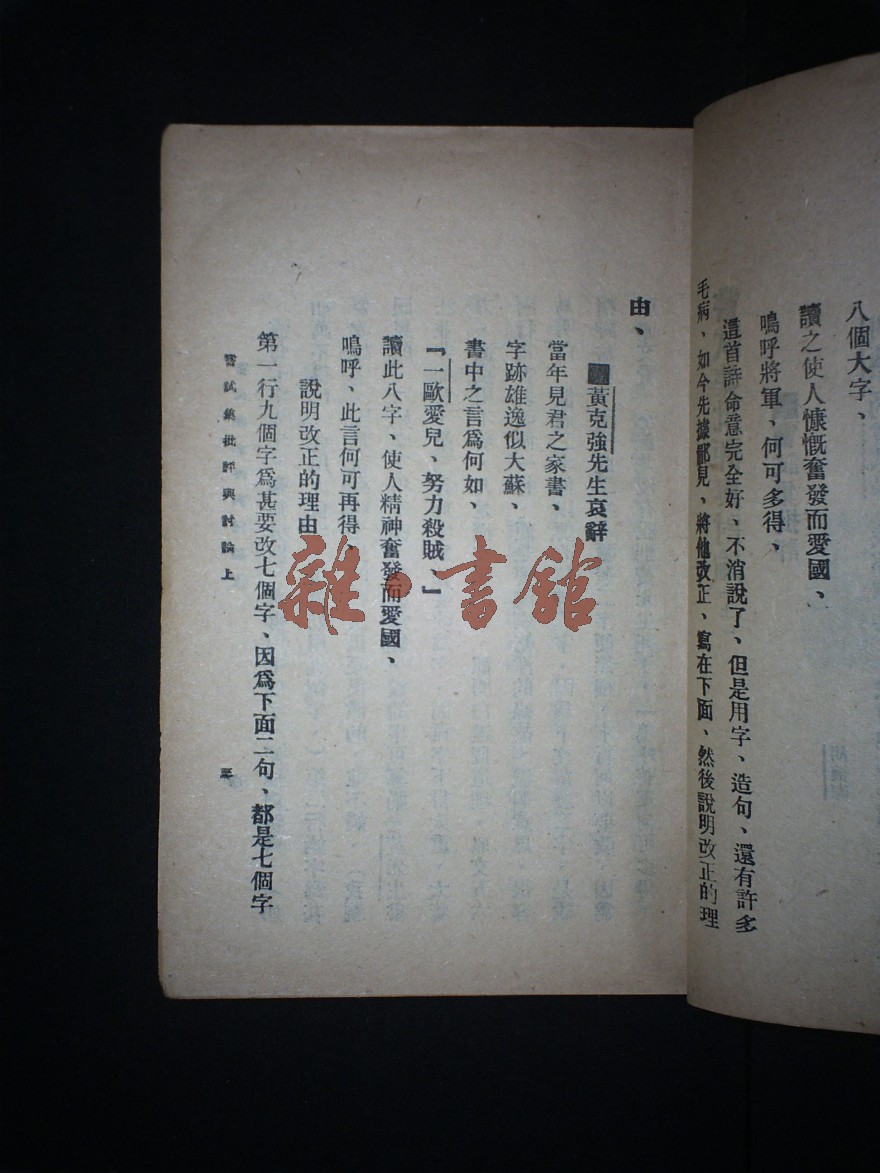 八個大字、
讀之使人慷慨奮發而愛國、
嗚呼將軍、何可多得、
這首詩命意完全好、不消說了、但是用字、造句、還有許多
毛病、如今先據鄙見、將他改正、寫在下面、然後說明改正的理
由、
黃克強先生哀辭
當年見君之家書、
字跡雄逸似大蘇、
書中之言爲何如、
『一歐愛兒、努力殺賊、』
讀此八字、使人精神奮發而愛國、
嗚呼、此言何可再得、
說明改正的理由
第一行九個字爲甚要改七個字、因爲下面二句、都是七個字
嘗試集批評與討論上
三
雜·書館